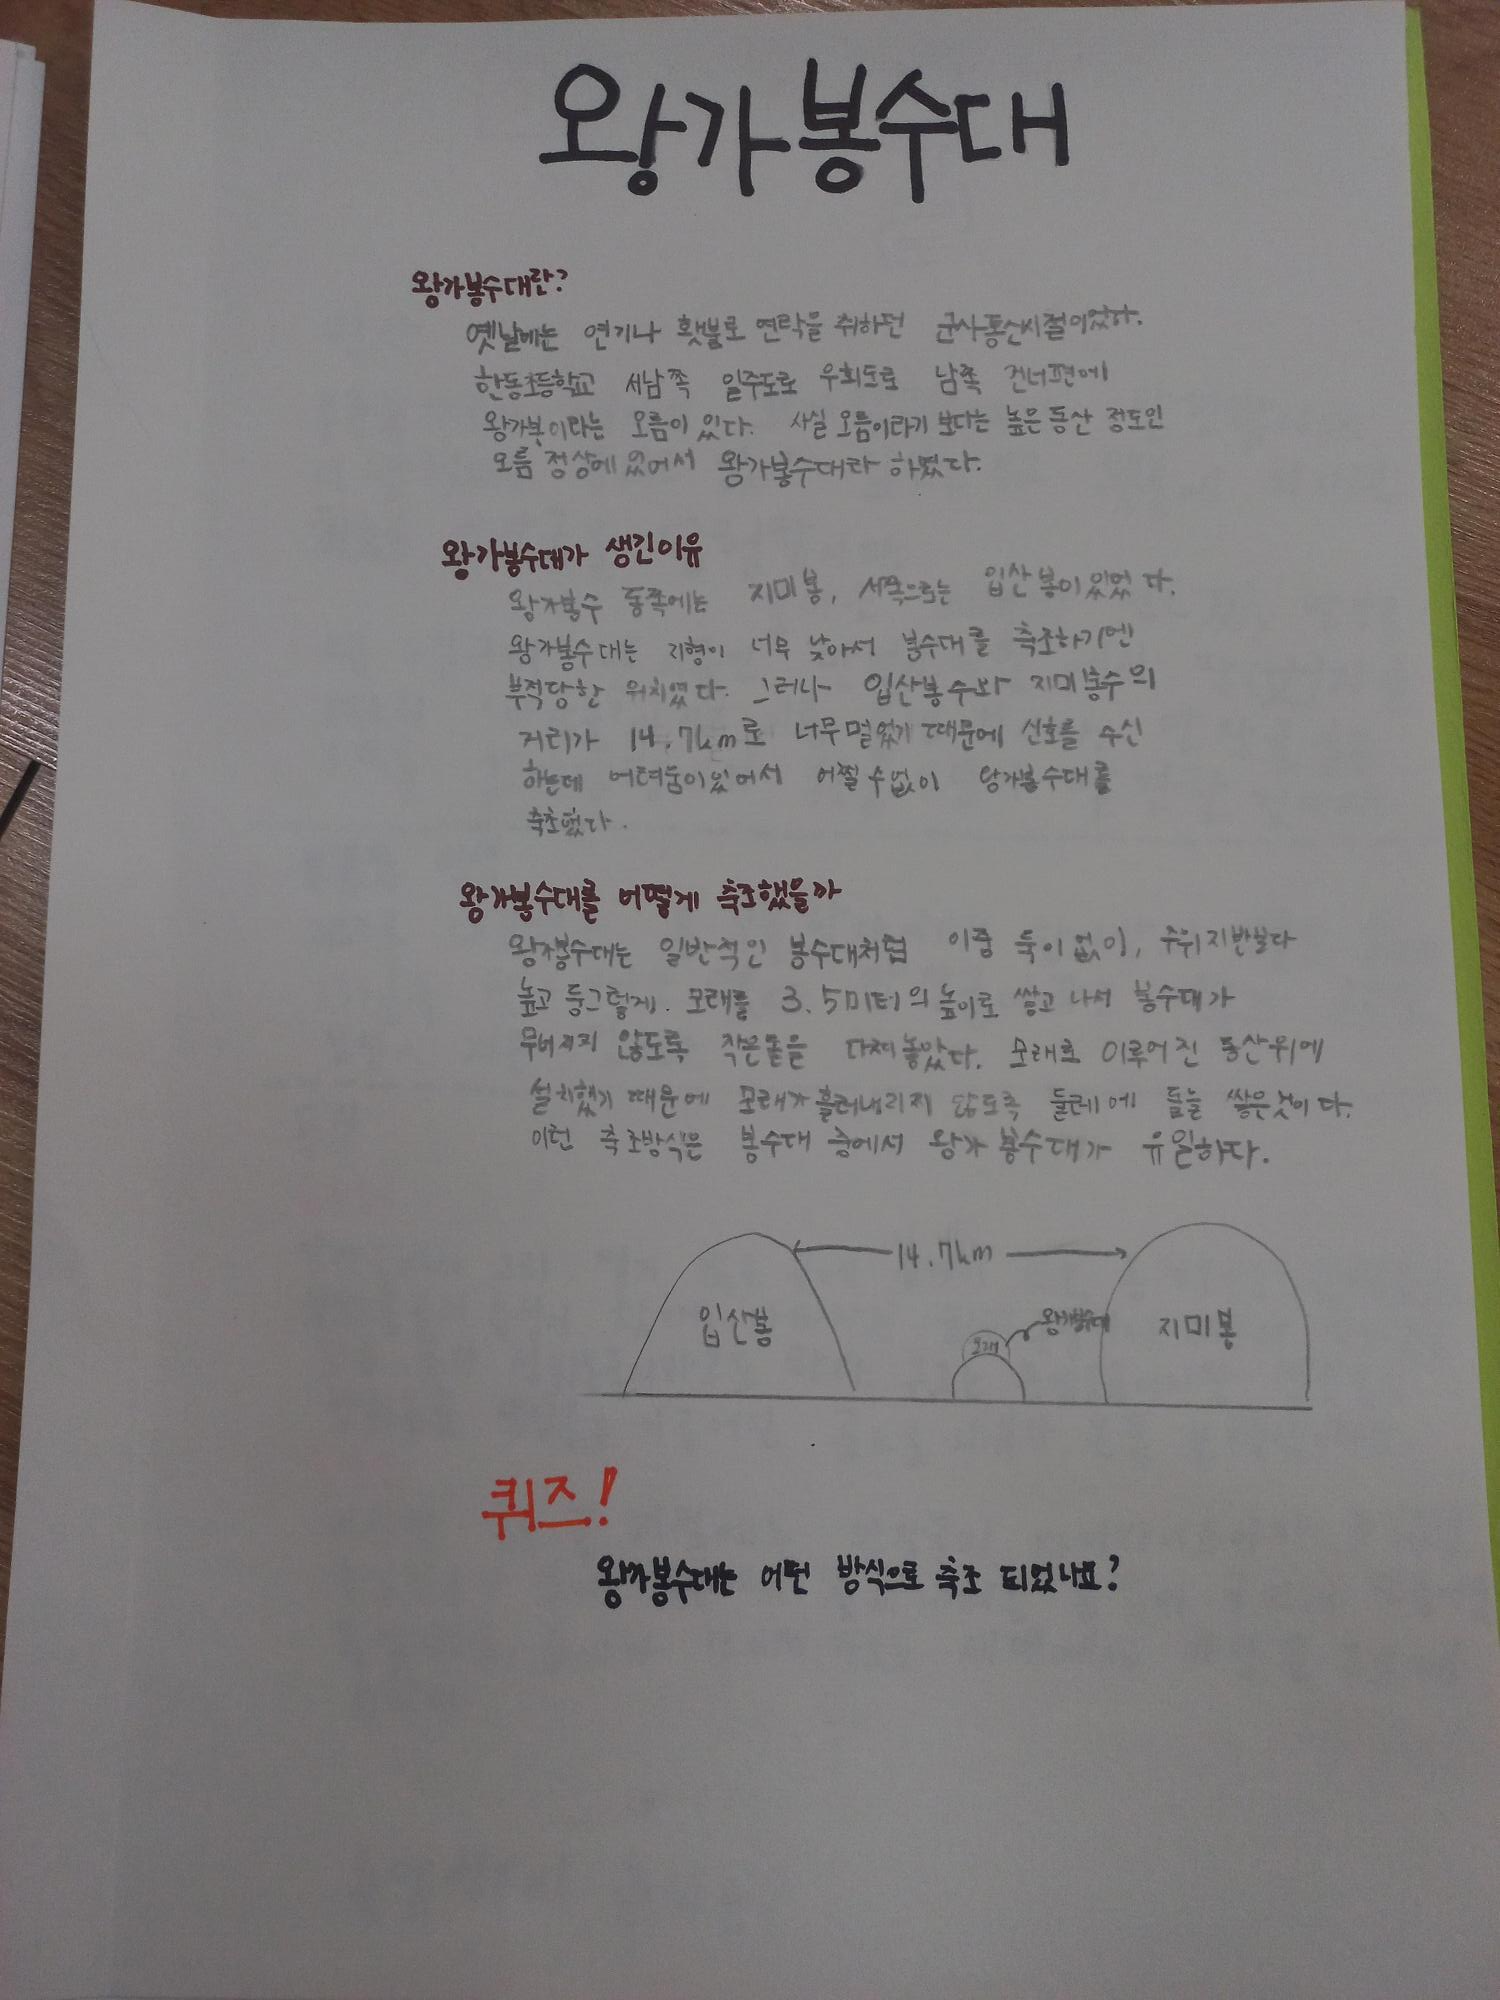 왕가봉수대
왕가봉수대란?
옛날에는 연기나 횃불로 연락을 취하던 군사통신시절이었다.
한동초등학교 서남쪽 일주도로 우회도로 남쪽 건너편에
왕가봉이라는 오름이 있다. 사실 오름이라기 보다는 높은 동산 정도인
오름 정상에 있어서 왕가봉수대라 하였다.
왕가봉수대가 생긴이유
왕가봉수 동쪽에는 지미봉, 서쪽으로는 입산봉이 있었다.
왕가봉수대는 지형이 너무 낮아서 봉수대를 축조하기엔
부적당한 위치였다. 그러나 입산봉수와 지미봉수의
거리가 14.7km로 너무 멀었기 때문에 신호를 수신
하는데 어려움이 있어서 어쩔 수 없이 왕가봉수대를
축조했다.
왕가봉수대를 어떻게 축조했을까
왕가봉수대는 일반적인 봉수대처럼 이중 둑이 없이, 주위지반보다
높고 둥그렇게. 모래를 3.5미터의 높이로 쌓고 나서 봉수대가
무너지지 않도록 작은돌을 다져놓았다. 모래로 이루어진 동산위에
설치했기 때문에 모래가 흘러내리지 않도록 둘레에 돌을 쌓은것이다.
이런 축조방식은 봉수대 중에서 왕가봉수대가 유일하다.
14.7km
입산봉
모래
왕가봉수대
지미봉
퀴즈!
왕가봉수대는 어떤 방식으로 축조 되었나요?